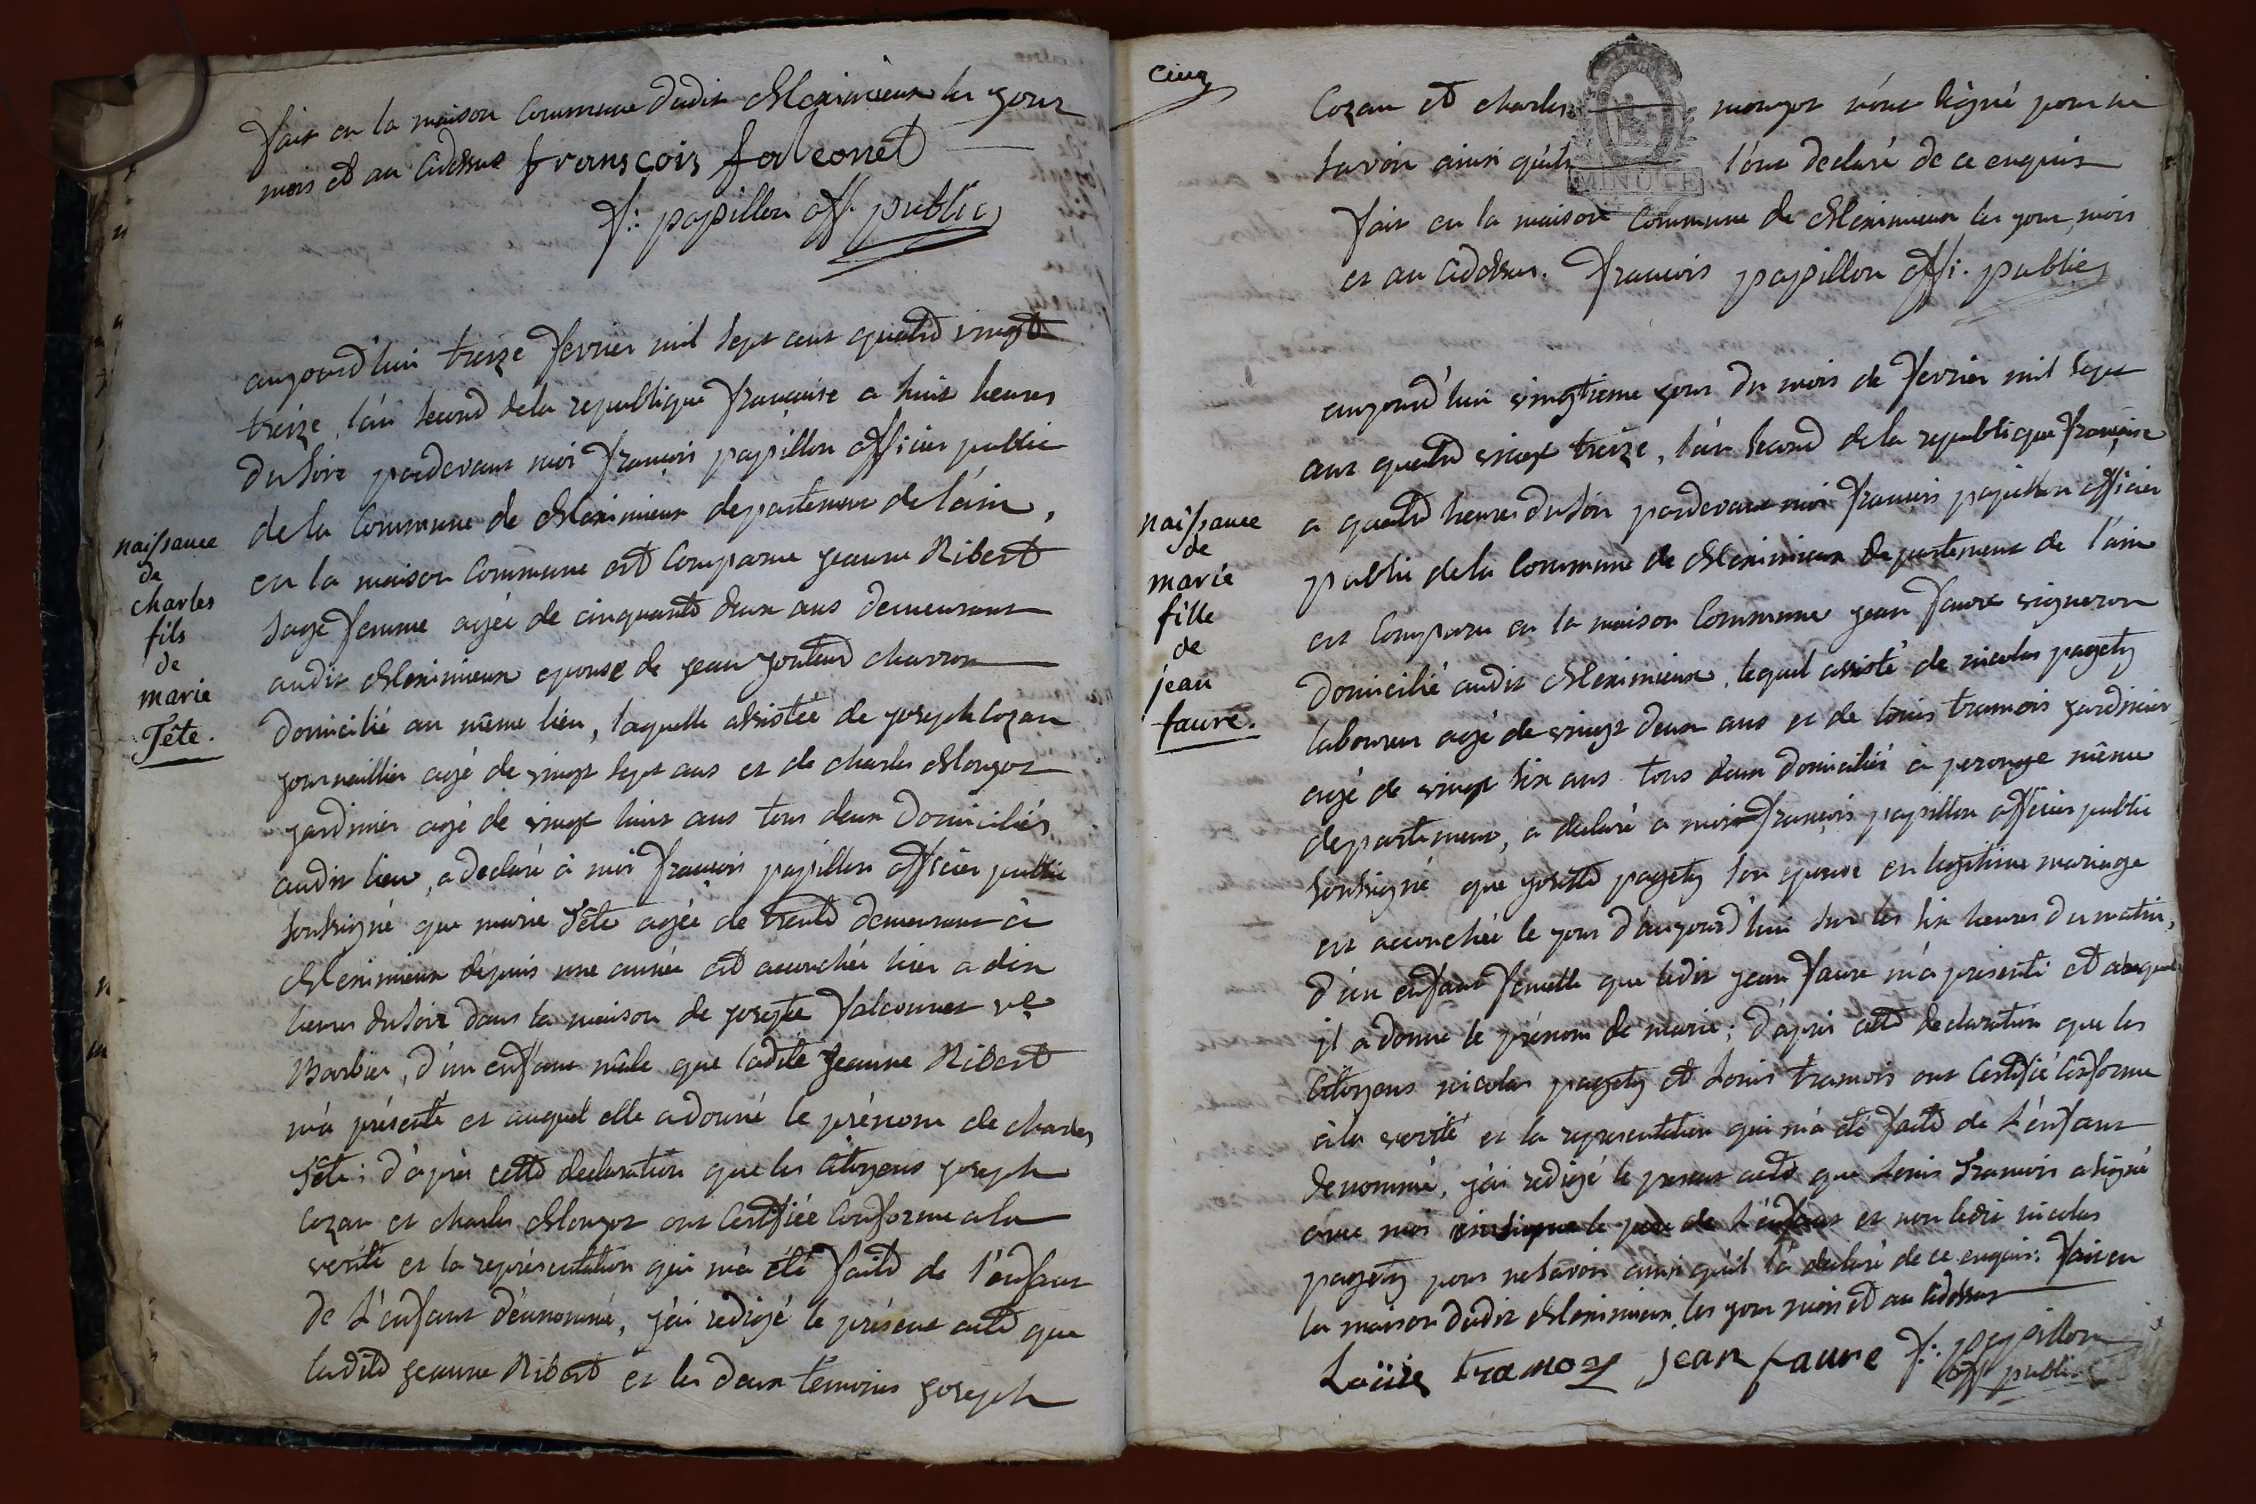 fait en la maison Commune dudit Meximieux les jour
mois et an Cidessus françois falconet
f: papillon off. public
aujourd'hui treize fevrier mil sept cent quatre vingt
treize, l'an second de la republique française a huit heures
du soir pardevant moi françois papillon officier public
de la Commune de Meximieux departement de l'ain,
en la maison Commune est Comparue jeanne Ribert
sage femme agée de cinquante deux ans demeurant
audit Meximieux epouse de jean charron
domicilié au même lieu, laquelle assistée de joseph Cozan
journaillier agé de vingt sept ans et de charles Monyot
jardinier agé de vingt huit ans tous deux domiciliés
audit lieu, a declaré à moi françois papillon officier public
soussigné que marie Tête agée de trente demeurant à
Meximieux depuis une année est accouchée hier a dix
heures du soir dans la maison de josepte falconnet ve
Barbier, d'un enfant mâle que ladite jeanne Ribert
m'a présenté et auquel elle a donné le prénom de charles
Tête; d'après cette declaration que les Citoyens joseph
Cozan et charles Monyot ont Certifiée Conforme a la
verité et la représentation qui m'a été faite de l'enfant
de l'enfant dénnommé, j'ai redigé le présent acte que
ladite jeanne Ribert et les deux temoins joseph
naissance
de
charles
fils
de
marie
Tête.
cinq
Cozan et charles monyot n'ont signé pour ne
savoir ainsi qu'ils l'ont declaré de ce enquis
MINUTE
fait en la maison Commune de Meximieux les jour, mois
et an Cidessus. françois papillon offi. public
aujourd'hui vingtieme jour du mois de fevrier mil sept
cent quatre vingt treize, l'an second de la republique française
a quatre heures du soir pardevant moi françois papillon officier
public de la Commune de Meximieux departement de l'ain
est Comparu en la maison Commune jean faure vigneron
domicilié audit Meximieux, lequel assisté de nicolas pagety
laboureur agé de vingt deux ans et de loüis tramois jardinier
agé de vingt six ans tous deux domiciliés à perouge même
departement, a declaré a moi françois papillon officier public
soussigné que josette pagety son epouse en legitime mariage
est accouchée le jour d'aujourd'hui sur les six heures du matin,
d'un enfant femelle que ledit jean faure m'a presenté et auquel
il a donné le prénom de marie; d'après cette declaration que les
Citoyens nicolas pagety et Louis tramois ont Certifié Conforme
à la verité et la representation qui m'a été faite de L'enfant
denommé, j'ai redigé le present acte que Louis tramois a signé
avec moi le pere de L'enfant et non ledit nicolas
pagety pour ne savoir ainsi qu'il l'a declaré de ce enquis: fait en
la maison dudit Meximieux les jour mois et an Cidessus
Loüis tramoy jean faure f: papillon
off public
naissance
de
marie
fille
de
jean
faure.